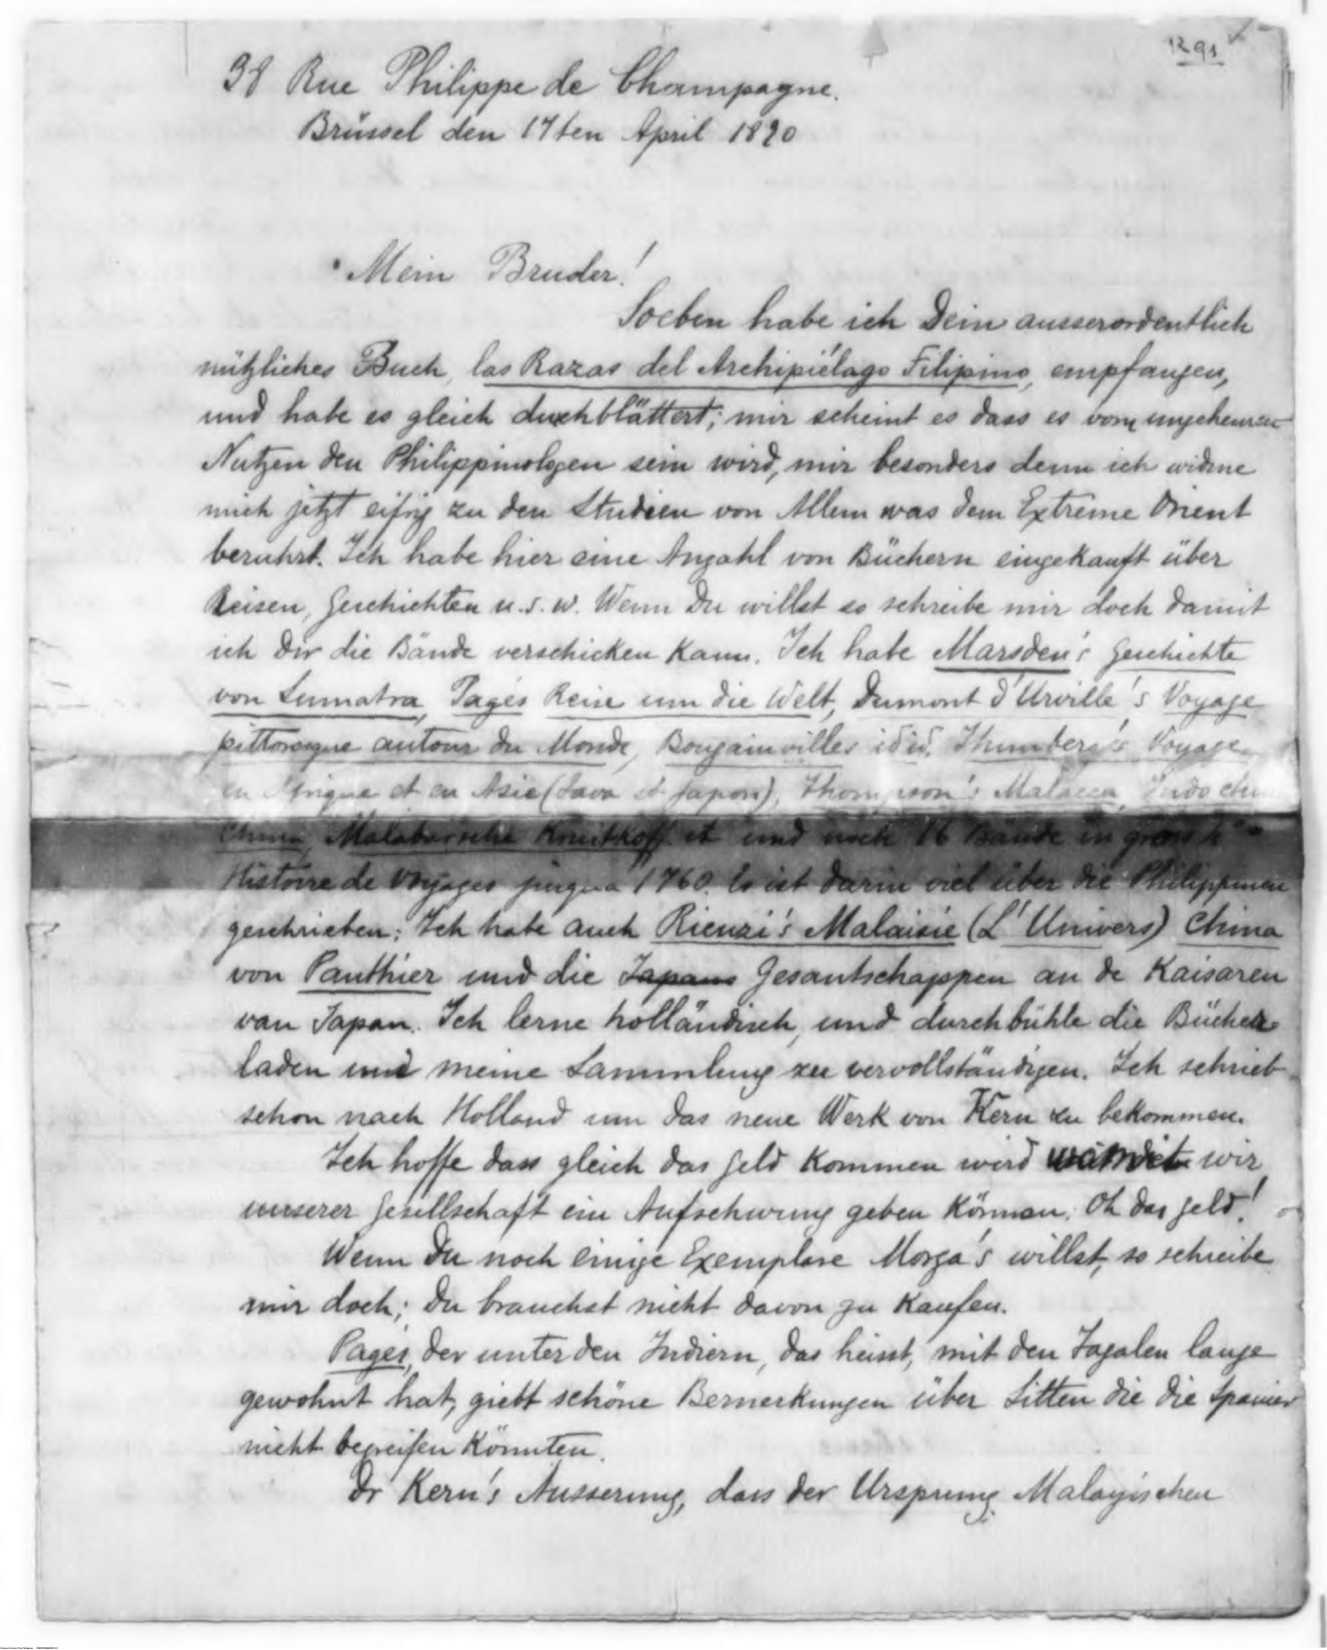 R 91
38 Rue Philippe de Champagne.
Brüssel den 17ten April 1890
Mein Bruder!
Soeben habe ich Dein ausserordentlich
nützliches Buch, las Razas del Archipiélago Filipino, empfangen,
und habe es gleich durchblättert; mir scheint es dass es vom ungeheuren
Nutzen den Philippinologen sein wird, mir besonders denn ich widme
mich jetzt eifrig zu den Studien von Allem was dem Extrême Orient
beruhrt. Ich habe hier eine Anzahl von Büchern eingekauft über
Reisen, Geschichten u. s. w. Wenn Du willst so schreibe mir doch damit
ich Dir die Bände verschicken kann. Ich habe Marsden's Geschichte
von Sumatra, Pagés Reise um die Welt, Dumont d'Urville's Voyage
pittoresque autour du Monde, Bougainvilles idid. Thunberg's Voyage
en Afrique et en Asie (Java et Japon), Thompson's Malacca, Indo
China, Malabarsche et und noch 16 Bände in gross
Histoire de Voyages jusqua 1760. Es ist darin viel über die Philippinen
geschrieben; Ich habe auch Rienzi's Malaisie (L'Univers) China
von Pauthier und die Japans Gesantschappen an de Kaisaren
van Japan. Ich lerne holländisch, und durchbühle die Bücher
laden und meine Sammlung zu vervollständigen. Ich schrieb
schon nach Holland um das neue Werk von Kern zu bekommen.
Ich hoffe dass gleich das Geld kommen wird wir
unserer Gesellschaft ein Aufschwung geben können. Oh das Geld!
Wenn Du noch einige Exemplare Morga's willst, so schreibe
mir doch; Du brauchst nicht davon zu kaufen.
Pagés, der unter den Indiern, das heisst, mit den Tagalen lange
gewohnt hat, giebt schöne Bemerkungen über Sitten die die Spanier
nicht begreifen könnten.
Dr Kern's Äusserung, dass der Ursprung Malayischen